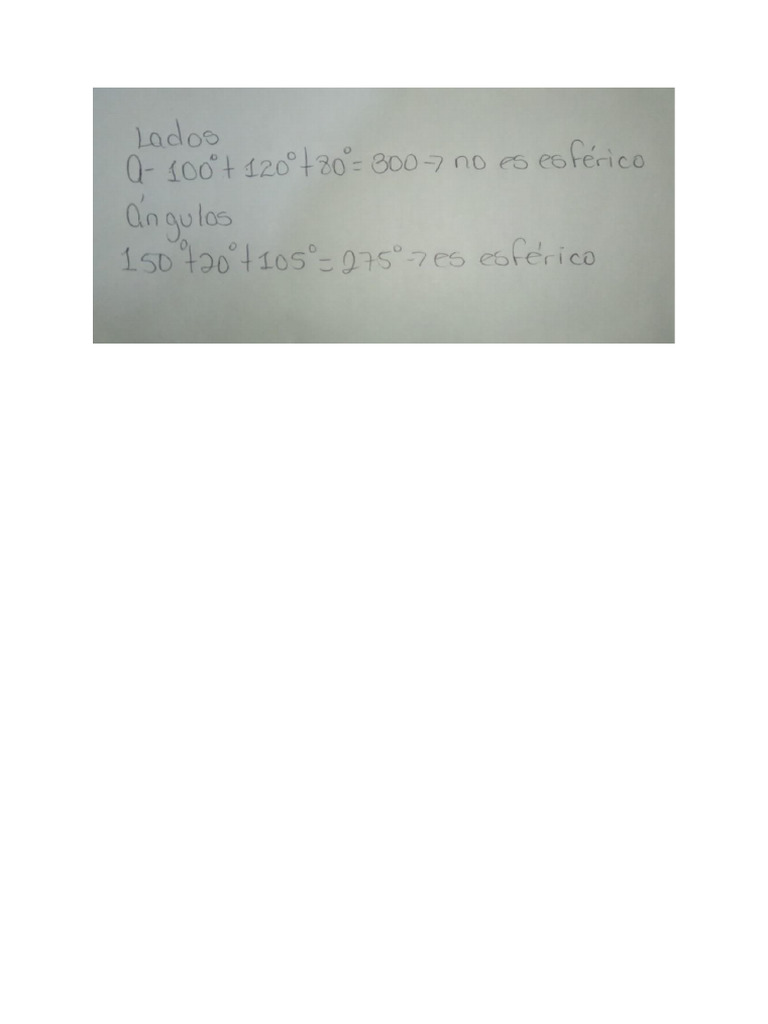 Lados
a- 100° + 120° + 80° = 300 → no es esférico
Ángulos
150° + 20° + 105° = 275° → es esférico